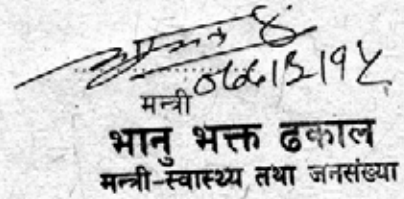 मन्त्री
भानु भक्त ढकाल
मन्त्री-स्वास्थ्य तथा जनसंख्या